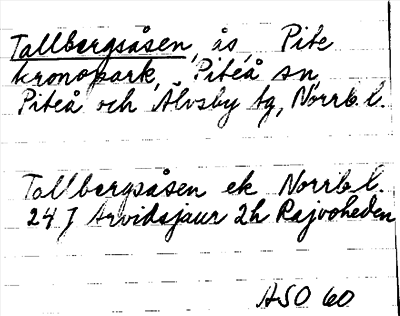 Tallbergsåsen, ås, Pite
kronopark, Piteå sn,
Piteå och Älvsby tg, Norrb. l.
Tallbergsåsen ek Norrb. l.
24 J Arvidsjaur 2h Rajvoheden
ASO 60